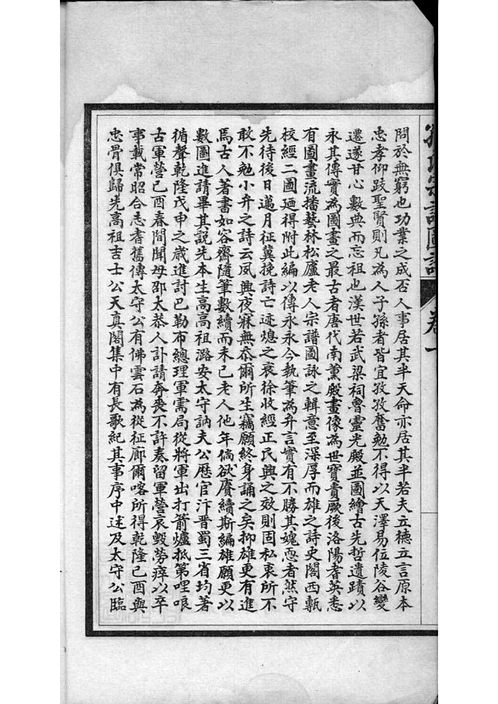 問於無窮也功業之成否人事居其半天命亦居其半若夫立德立言原本
忠孝仰跂聖賢則凡為人子孫者皆宜孜孜奮勉不得以天澤易位陵谷變
遷遂甘心數典而忘祖也漢世若武梁祠魯靈光殿並圖繪古先哲遺蹟以
永其傳實為圖畫之最古者唐代南薰殿畫像為世寶貴厥後洛陽耆英悉
有圖畫流播藝林松廬老人宗譜圖詠之輯意至深厚而雄之詩史閣西甎
校經二圖迺得附此編以傳永永今執筆為弁言實有不勝其媿恧者然守
先待後日邁月征冀挽詩亡迹熄之衰徐收經正民興之效則固私衷所不
敢不勉小弁之詩云夙興夜寐無忝爾所生竊願終身誦之矣抑雄更有進
焉古人著書如容齋隨筆數續而未已老人他年倘欲賡續斯編雄願更以
數圖進請畢其說先本生高高祖潞安太守訥夫公歷官汴晉蜀三省均著
循聲乾隆戊申之歲進討巴勒布總理軍需局從將軍出打箭爐抵第哩哴
古軍營己酉春間聞母邵太恭人訃請奔喪不許奏留軍營哀毀勞瘁以卒
事載常昭合志耆舊傳太守公有佛雲石為從征廓爾喀所得乾隆己酉與
忠骨俱歸先高祖吉士公天真閣集中有長歌紀其事序中述及太守公臨